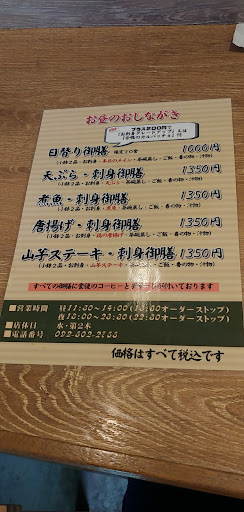 お昼のおしながき
プラス200円で
日替り御膳 限定10食 1000円
(小鉢2品・お刺身・本日のメイン・茶碗蒸し・ご飯・香の物・汁物)
天ぷら・刺身御膳 1350円
(小鉢2品・お刺身・天ぷら・茶碗蒸し・ご飯・香の物・汁物)
煮魚・刺身御膳 1350円
(小鉢2品・お刺身・煮魚・茶碗蒸し・ご飯・香の物・汁物)
唐揚げ・刺身御膳 1350円
(小鉢2品・お刺身・鶏の唐揚げ・茶碗蒸し・ご飯・香の物・汁物)
山芋ステーキ・刺身御膳 1350円
(小鉢2品・お刺身・山芋ステーキ・茶碗蒸し・ご飯・香の物・汁物)
すべての御膳に食後のコーヒーとデザートが付いております
■営業時間 昼11:30~14:00(13:30オーダーストップ)
夜18:00~23:00(22:30オーダーストップ)
■店休日 水・第2木
■電話番号
価格はすべて税込です